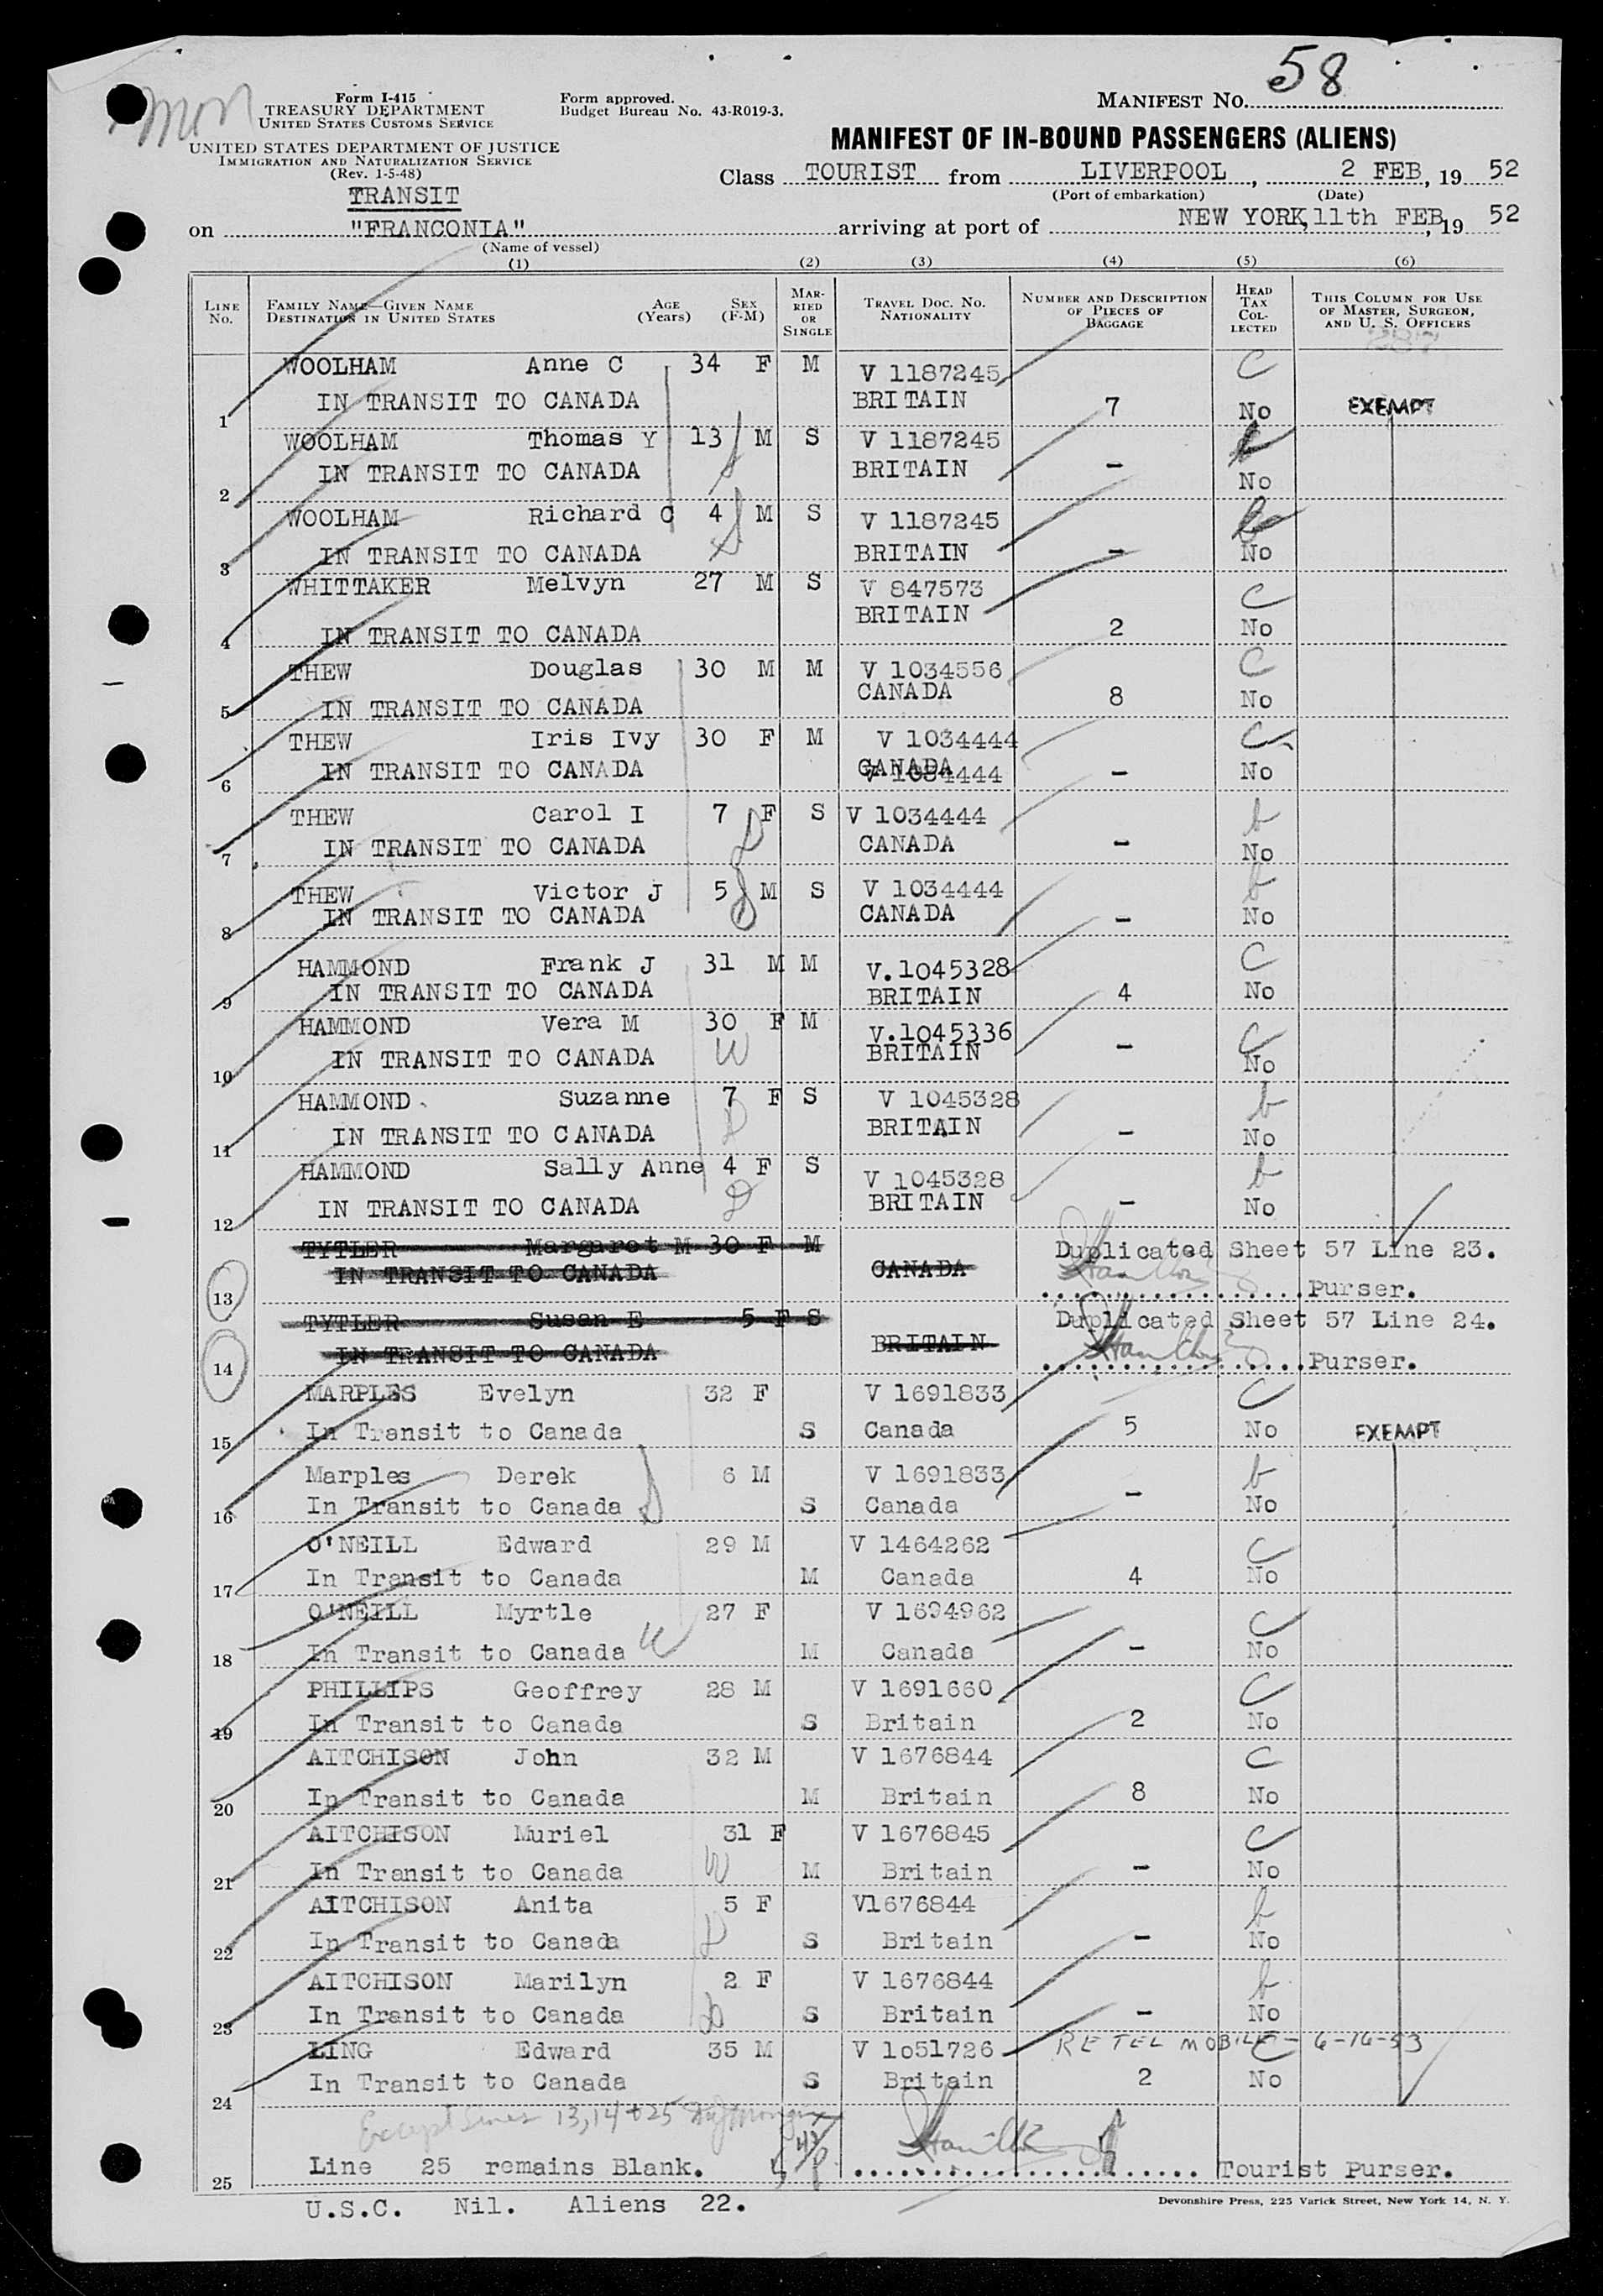 58
Form I-415
TREASURY DEPARTMENT
UNITED STATES CUSTOMS SERVICE
Form approved.
Budget Bureau No. 43-R019-3.
MANIFEST No. 
UNITED STATES DEPARTMENT OF JUSTICE
IMMIGRATION AND NATURALIZATION SERVICE
(Rev. 1-5-48)
MANIFEST OF IN-BOUND PASSENGERS (ALIENS)
TRANSIT
Class TOURIST from LIVERPOOL, 2 FEB, 19 52
(Port of embarkation) (Date)
on "FRANCONIA" arriving at port of NEW YORK, 11th FEB, 19 52
(Name of vessel)
(1) (2) (3) (4) (5) (6)
LINE No. FAMILY NAME—GIVEN NAME DESTINATION IN UNITED STATES AGE (Years) SEX (F-M) MARRIED OR SINGLE TRAVEL DOC. NO. NATIONALITY NUMBER AND DESCRIPTION OF PIECES OF BAGGAGE HEAD TAX COLLECTED THIS COLUMN FOR USE OF MASTER, SURGEON, AND U. S. OFFICERS
WOOLHAM Anne C 34 F M V 1187245 C
1 IN TRANSIT TO CANADA BRITAIN 7 No EXEMPT
WOOLHAM Thomas Y 13 M S V 1187245
2 IN TRANSIT TO CANADA BRITAIN - No
WOOLHAM Richard C 4 M S V 1187245
3 IN TRANSIT TO CANADA BRITAIN - No
WHITTAKER Melvyn 27 M S V 847573 C
4 IN TRANSIT TO CANADA BRITAIN 2 No
THEW Douglas 30 M M V 1034556 C
5 IN TRANSIT TO CANADA CANADA 8 No
THEW Iris Ivy 30 F M V 1034444 C
6 IN TRANSIT TO CANADA CANADA - No
THEW Carol I 7 F S V 1034444 b
7 IN TRANSIT TO CANADA CANADA - No
THEW Victor J 5 M S V 1034444 b
8 IN TRANSIT TO CANADA CANADA - No
HAMMOND Frank J 31 M M V.1045328 C
9 IN TRANSIT TO CANADA BRITAIN 4 No
HAMMOND Vera M 30 F M V.1045336 C
10 IN TRANSIT TO CANADA W BRITAIN - No
HAMMOND Suzanne 7 F S V 1045328 b
11 IN TRANSIT TO CANADA BRITAIN - No
HAMMOND Sally Anne 4 F S V 1045328 b
12 IN TRANSIT TO CANADA BRITAIN - No
TYTLER Margaret M 30 F M Duplicated Sheet 57 Line 23.
13 IN TRANSIT TO CANADA CANADA Purser.
TYTLER Susan E 5 F S Duplicated Sheet 57 Line 24.
14 IN TRANSIT TO CANADA BRITAIN Purser.
MARPLES Evelyn 32 F V 1691833 C
15 In Transit to Canada S Canada 5 No EXEMPT
Marples Derek 6 M V 1691833 b
16 In Transit to Canada S Canada - No
O'NEILL Edward 29 M V 1464262 C
17 In Transit to Canada M Canada 4 No
O'NEILL Myrtle 27 F V 1694962 C
18 In Transit to Canada W M Canada - No
PHILLIPS Geoffrey 28 M V 1691660 C
19 In Transit to Canada S Britain 2 No
AITCHISON John 32 M V 1676844 C
20 In Transit to Canada M Britain 8 No
AITCHISON Muriel 31 F V 1676845 C
21 In Transit to Canada W M Britain - No
AITCHISON Anita 5 F V1676844 b
22 In Transit to Canada S Britain - No
AITCHISON Marilyn 2 F V 1676844 b
23 In Transit to Canada S Britain - No
LING Edward 35 M V 1051726 RE TEL MOBILE - 6-16-53
24 In Transit to Canada S Britain 2 No
Except Lines 13, 14 + 25
25 Line 25 remains Blank. Tourist Purser.
U.S.C. Nil. Aliens 22.
Devonshire Press, 225 Varick Street, New York 14, N. Y.